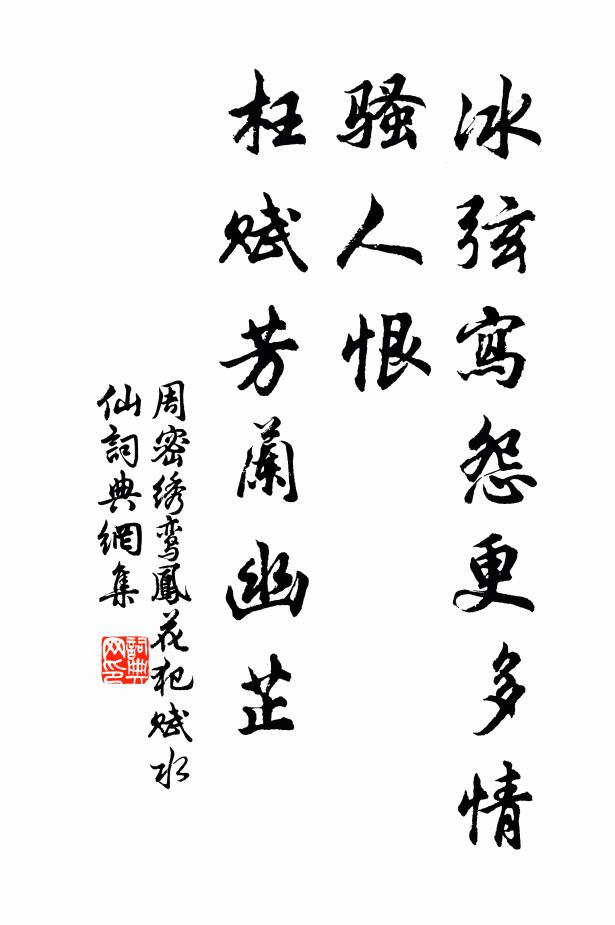 冰弦寫怨更多情
騷人恨
枉赋芳蘭幽芷
周密绣鸾鳳花犯赋水
仙詞典網集
詞典
网印